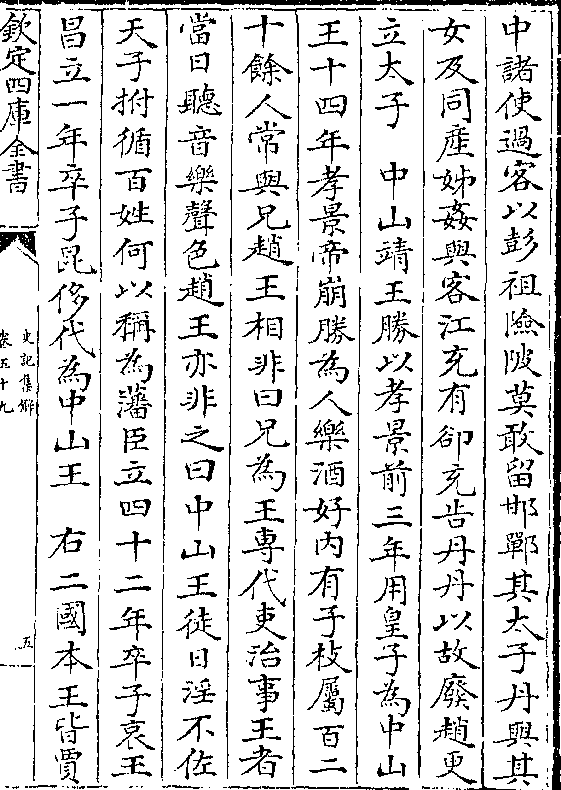 中諸使過客以彭祖險陂莫敢留邯鄲其太子丹與其
女及同產姊姦與客江充有卻充告丹丹以故廢趙更
立太子　中山靖王勝以孝景前三年用皇子為中山
王十四年孝景帝崩勝為人樂酒好內有子枝屬百二
十餘人常與兄趙王相非曰兄為王專代吏治事王者
當日聽音樂聲色趙王亦非之曰中山王徒日淫不佐
天子拊循百姓何以稱為藩臣立四十二年卒子哀王
昌立一年卒子昆侈代為中山王　右二國本王皆賈
欽定四庫全書
史記集解
卷五十九
五